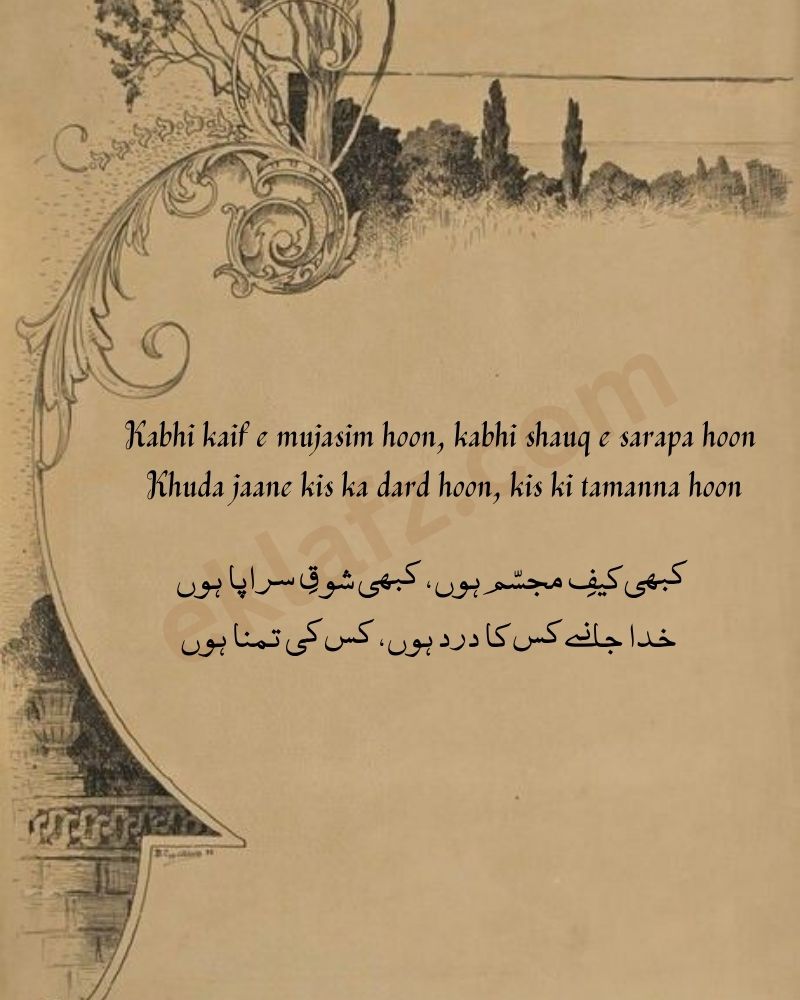 Kabhi kaif e mujasim hoon, kabhi shauq e sarapa hoon
Khuda jaane kis ka dard hoon, kis ki tamanna hoon
کبھی کیفِ مجسّم ہوں، کبھی شوقِ سراپا ہوں
خدا جانے کس کا درد ہوں، کس کی تمنا ہوں
eklafz.com